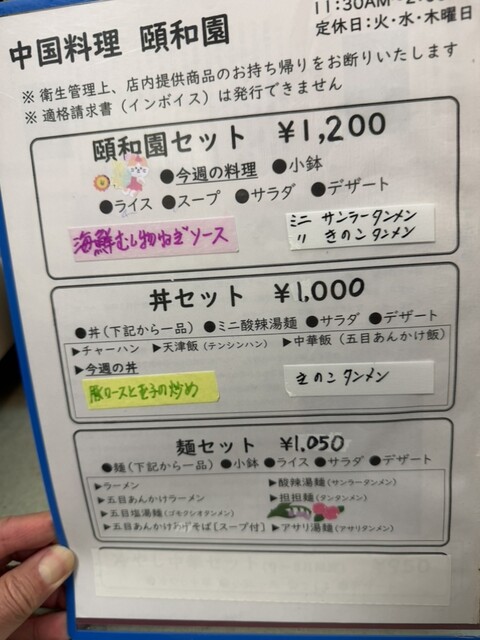 11:30AM~2:
定休日:火・水・木曜日
中国料理 頤和園
※ 衛生管理上、店内提供商品のお持ち帰りをお断りいたします
※ 適格請求書(インボイス)は発行できません
頤和園セット ¥1,200
●今週の料理 ●小鉢
●ライス ●スープ ●サラダ ●デザート
海鮮むし物ねぎソース
ミニ サンラータンメン
〃 きのこタンメン
丼セット ¥1,000
●丼(下記から一品) ●ミニ酸辣湯麺 ●サラダ ●デザート
▶チャーハン ▶天津飯(テンシンハン) ▶中華飯(五目あんかけ飯)
▶今週の丼
豚ロースと玉子の炒め
きのこタンメン
麺セット ¥1,050
●麺(下記から一品) ●小鉢 ●ライス ●サラダ ●デザート
▶ラーメン ▶酸辣湯麺(サンラータンメン)
▶五目あんかけラーメン ▶担担麺(タンタンメン)
▶五目塩湯麺(ゴモクシオタンメン)
▶五目あんかけあげそば[スープ付] ▶アサリ湯麺(アサリタンメン)